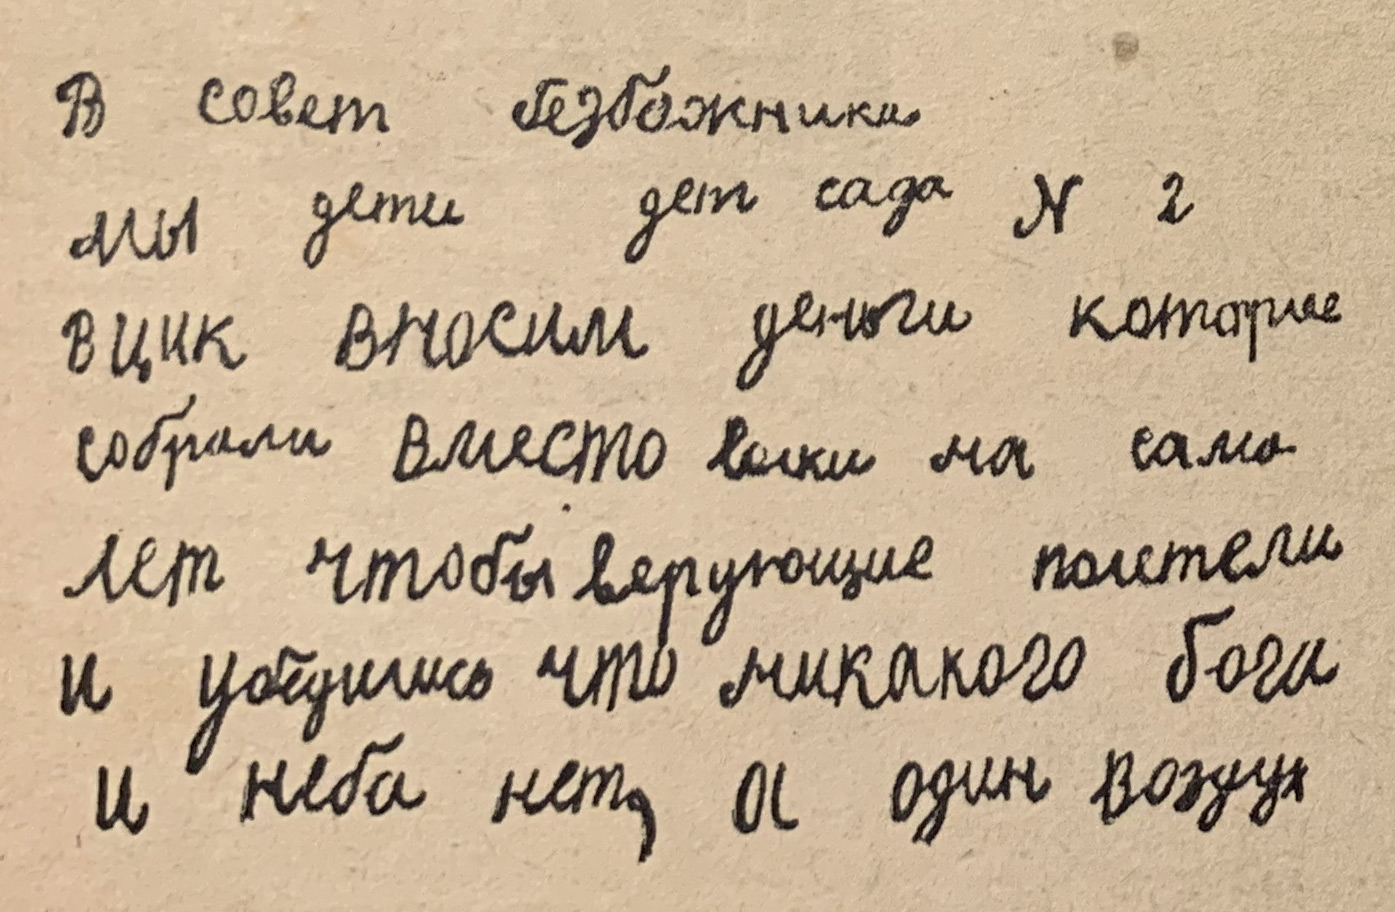 В совет безбожника
мы дети дет сада N 2
ВЦИК вносим деньги которые
собрали вместо елки на само
лет чтобы верующие полетели
и убедились что никакого бога
и неба нет, а один воздух